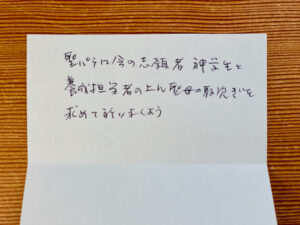 聖パウロ会の志願者 神学生と
養成担当者の上に聖母の取次ぎを
求めて祈りましょう